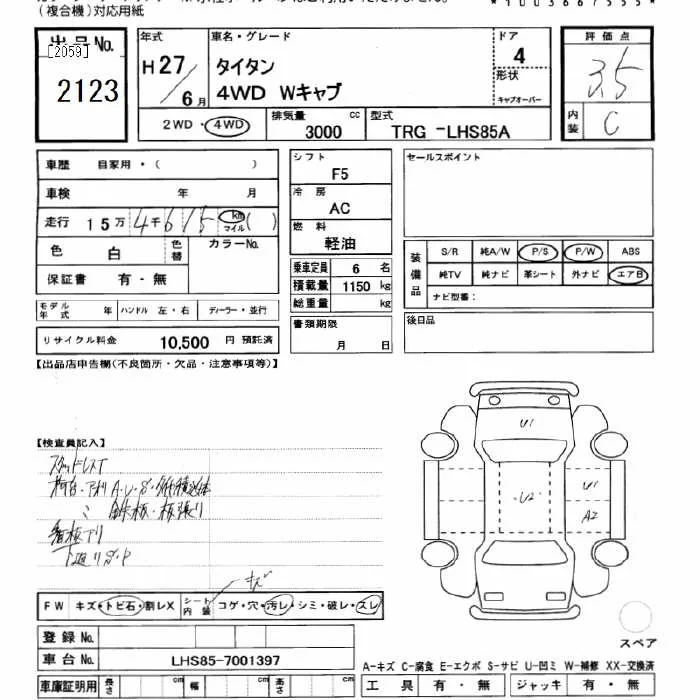 (複合機)対応用紙
出品No.
[2059]
2123
年式
H27/6月
車名・グレード
タイタン
4WD Wキャブ
ドア
4
形状
キャブオーバー
2WD・4WD
排気量
3000 cc
型式
TRG -LHS85A
評価点
3.5
内装
C
車歴 自家用・( )
車検 年 月
走行 15万4千615 km マイル ( )
色 白 色替 カラーNo.
保証書 有・無
モデル年式 年 ハンドル 左・右 ディーラー・並行
リサイクル料金 10,500 円 預託済
シフト
F5
冷房
AC
燃料
軽油
乗車定員 6 名
積載量 1150 kg
総重量 kg
書類期限
月 日
セールスポイント
装備品
S/R 純A/W P/S P/W ABS
純TV 純ナビ 革シート 外ナビ エアB
ナビ型番:
後日品
【出品店申告欄(不良箇所・欠品・注意事項等)】
【検査員記入】
スタッドレスT
鉄板・板張り
看板下リ
U1
U2
U1
A2
キズ
FW キズ・トビ石・割レX シート内装 コゲ・穴・汚レ・シミ・破レ・スレ
登録No.
車台No. LHS85-7001397
スペア
A-キズ C-腐食 E-エクボ S-サビ U-凹ミ W-補修 XX-交換済
車庫証明用 長さ cm 幅 cm 高さ cm
工具 有・無 ジャッキ 有・無